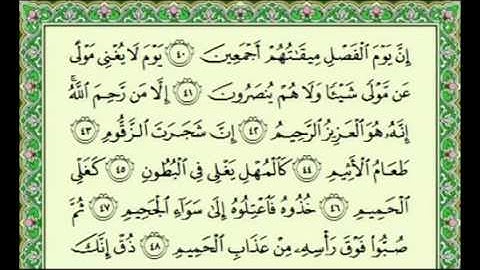 إِنَّ يَوْمَ ٱلْفَصْلِ مِيقَـٰتُهُمْ أَجْمَعِينَ ٤٠ يَوْمَ لَا يُغْنِى مَوْلًى
عَن مَّوْلًى شَيْـًٔا وَلَا هُمْ يُنصَرُونَ ٤١ إِلَّا مَن رَّحِمَ ٱللَّهُ ۚ
إِنَّهُۥ هُوَ ٱلْعَزِيزُ ٱلرَّحِيمُ ٤٢ إِنَّ شَجَرَتَ ٱلزَّقُّومِ ٤٣
طَعَامُ ٱلْأَثِيمِ ٤٤ كَٱلْمُهْلِ يَغْلِى فِى ٱلْبُطُونِ ٤٥ كَغَلْىِ
ٱلْحَمِيمِ ٤٦ خُذُوهُ فَٱعْتِلُوهُ إِلَىٰ سَوَآءِ ٱلْجَحِيمِ ٤٧ ثُمَّ
صُبُّوا۟ فَوْقَ رَأْسِهِۦ مِنْ عَذَابِ ٱلْحَمِيمِ ٤٨ ذُقْ إِنَّكَ